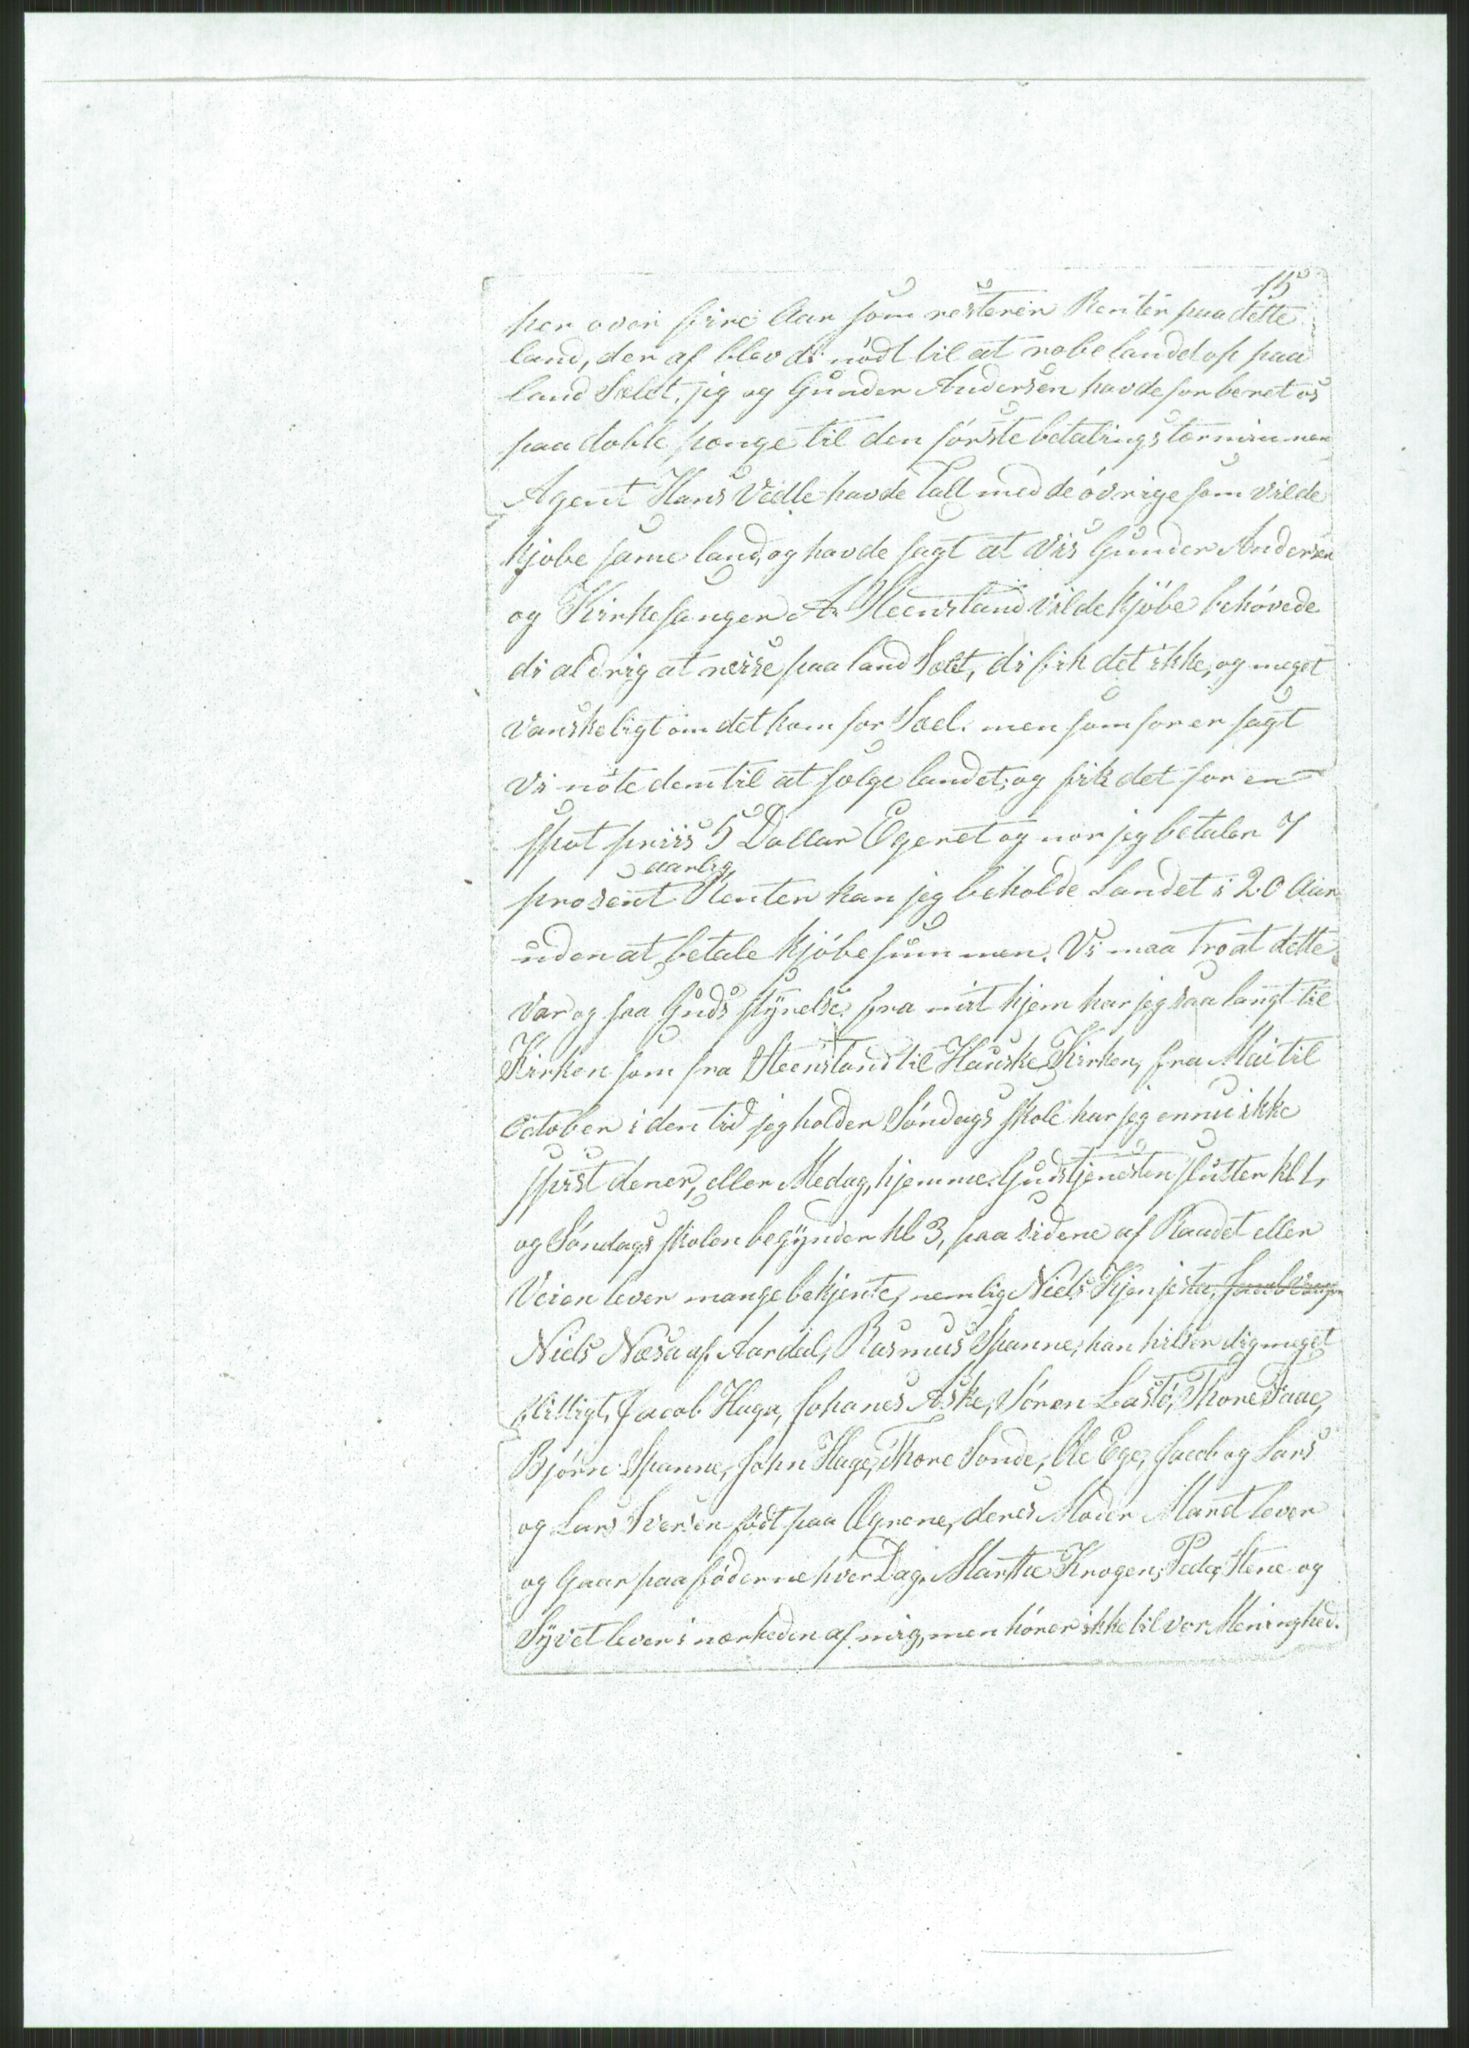 15
her over fire Aar som resterer Renter paa dette
land, der af blev di nödt til at robe landet op paa
land Sælet, jeg og Gunder Andersen havde forberet os
paa doble penge til den förste betalings terminnen
Agent Hans Vedle havde Talt med de óvrige som vilde
kjobe same land, og havde sagt at Vis Gunder Andersen
og Kirkesanger A. Steensland Vilde kjóbe behövede
di aldrig at reise paa land Sælet, di fik det ikke, og meget
vanskeligt om det kom for Sæl. men som for er sagt
vi nöte dem til at sælge landet, og fik det for en
spot priis 5 Dollar Egeret og nor jeg betaler 7
aarlig
prosent Renter kan jeg beholde Landet i 20 Aar
uden at betale kjóbesummen. Vi maa Tro at dette
var og saa Guds Styrelse. fra mit hjem har jeg saa langt til
Kirken som fra Steensland til Hauske Kirken, fra Mai til
October i den tid jeg holder Söndags skole har jeg ennu ikke
spist dener, eller Medag, hjemme. Gudstjenesten slutter kl 1,
og Söndags skolen begÿnder kl 3, paa sidene af Raadet eller
Veien lever mange bekjente, nemlig Niels
Niels Næsa af Aardal, Rasmus Spanne, han hilser dig meget
flittigt, Jacob Haga, Johanes Aske, Sören Lastö, Thore Faae,
Björn Spanne, John Hage, Thore Sonde, Ole Ege, Jacob og Lars
og Lars Iversen född paa Ögrene, deres Moder Maret lever
og Gaar paa föderne hver Dag. Marthe Krogen, Peder Stene og
Syvet lever i nærheden af mig, men hörer ikke til vor Menighed.